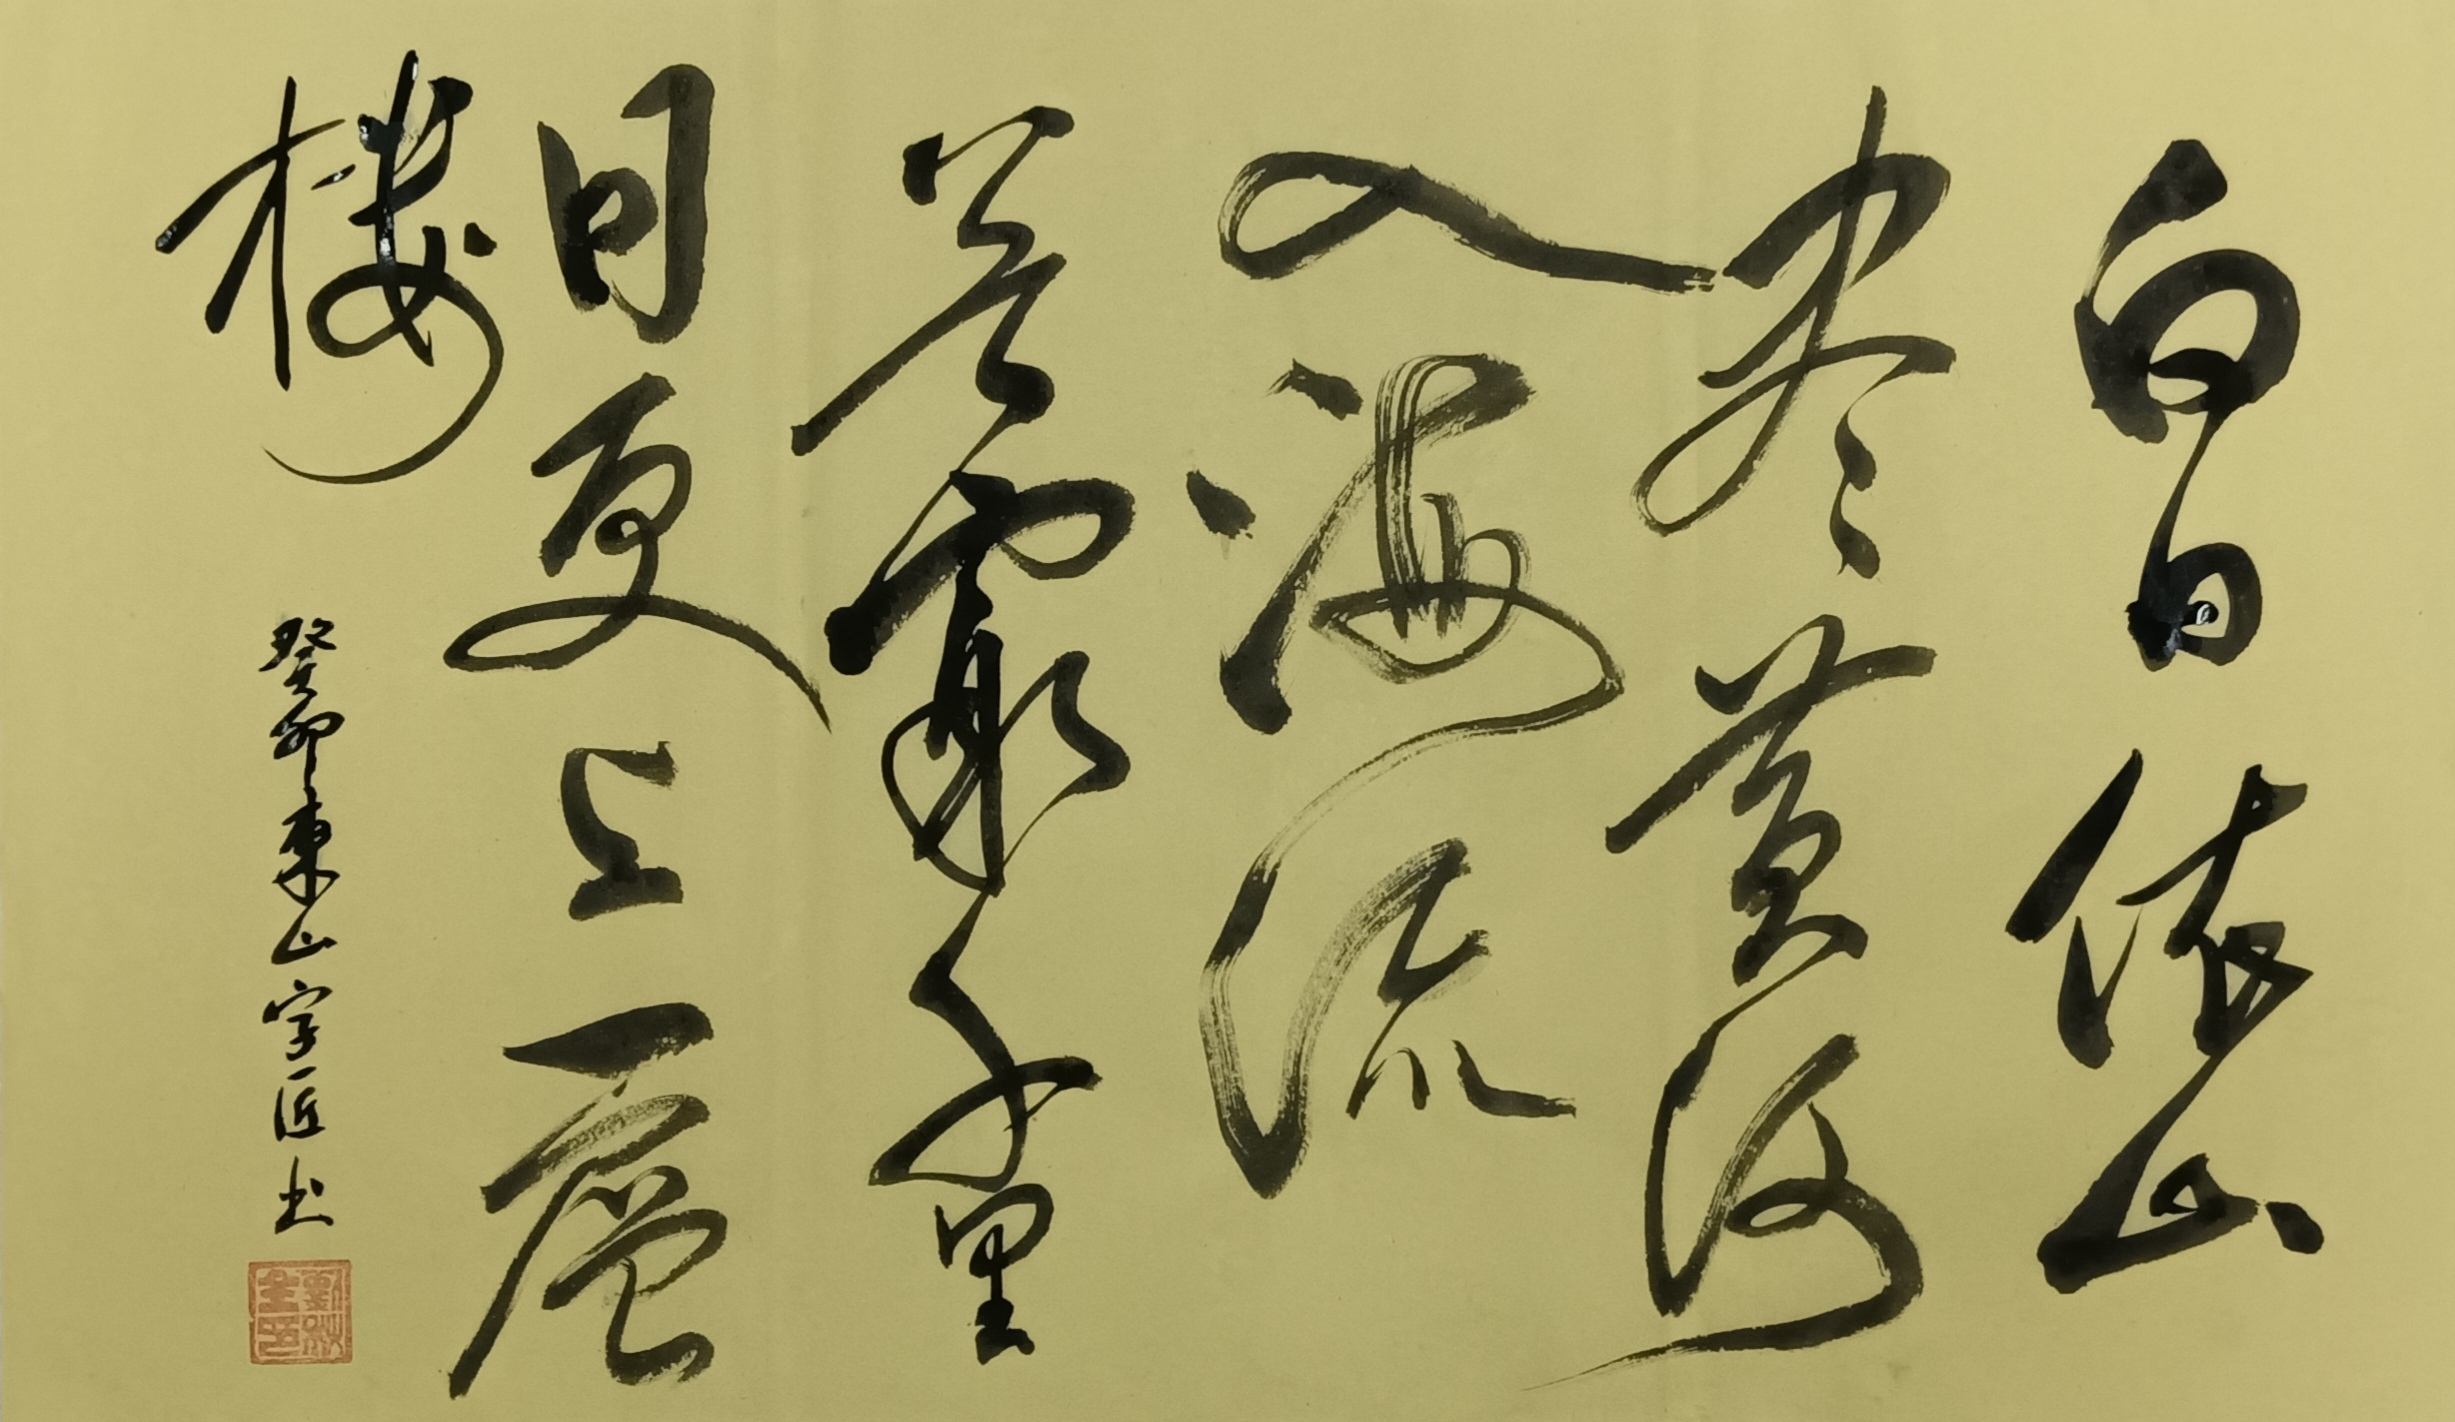 白日依山
尽黄河
入海流
欲窮千里
目更上一層
樓
癸卯東山字匠书